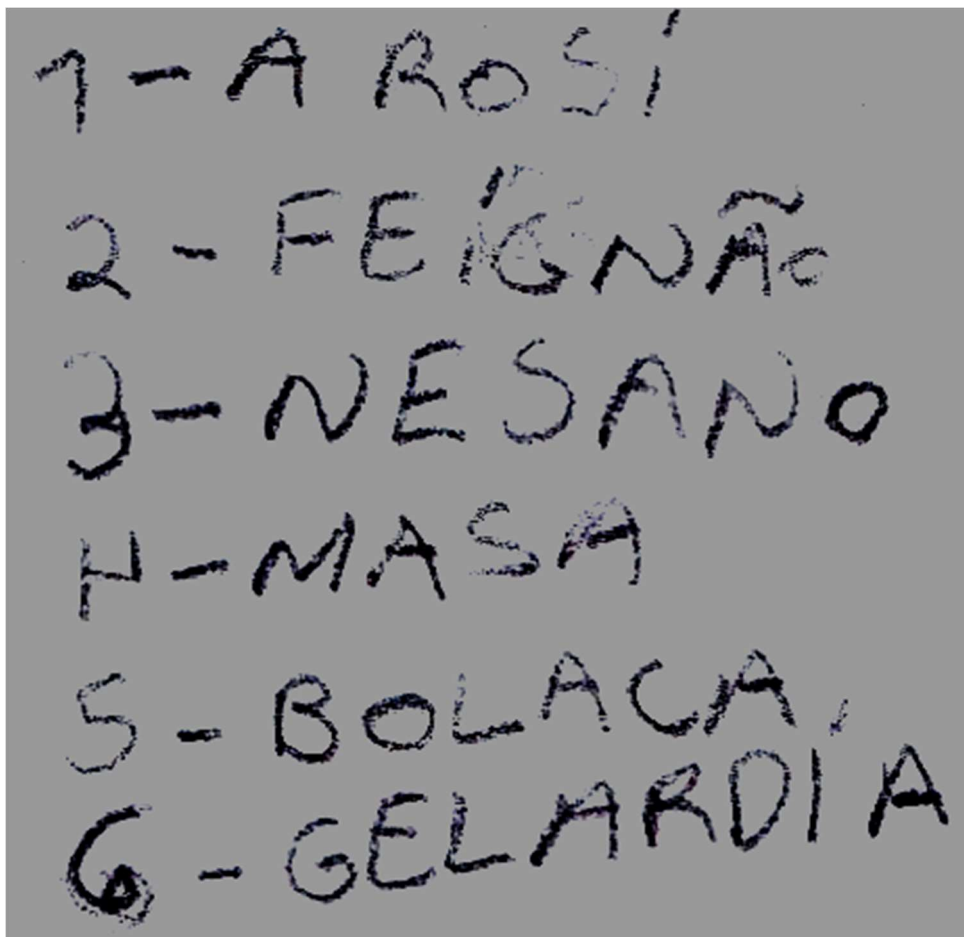 1-A ROSÍ
2-FEÍGNÃO
3-NESANO
4-MASA
5-BOLACA
6-GELARDÍA